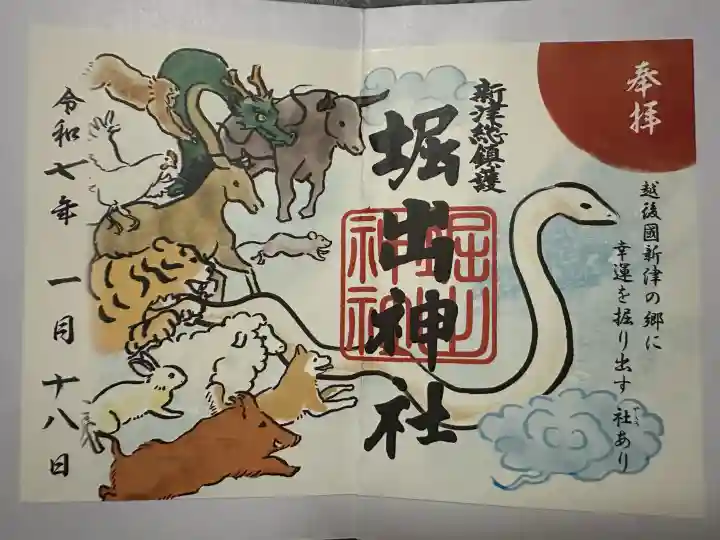 奉拝
越後國新津の郷に
幸運を掘り出す 社あり
やしろ
新津総鎮護
堀出神社
堀出
神社
令和七年 一月 十八日